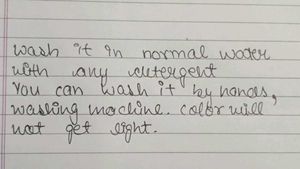 wash it in normal water
with any detergent
You can wash it by hands,
washing machine. Color will
not get light.